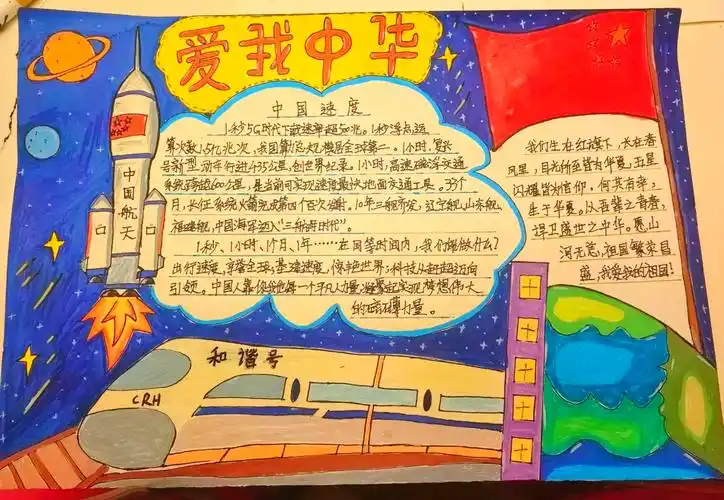 爱我中华
中国速度
1秒5G时代下载速率超50兆。1秒浮点运
算次数1.5亿亿次，我国算力总规模居全球第二。1小时，复兴
号新型动车行进435公里，创世界纪录。1小时，高速磁浮交通
系统跨越600公里，是当前可实现速度最快地面交通工具。33个
月，长征系列火箭完成第四个百次发射。10年三舰齐发，辽宁舰、山东舰、
福建舰，中国海军迈入“三航母时代”。
1秒、1小时、1个月、1年……在同等时间内，我们能做什么？
出行速度，享誉全球；基建速度，惊艳世界；科技从赶超迈向
引领。中国人靠你我他每一个平凡力量，凝聚起实现梦想伟大
的磅礴力量。
我们生在红旗下，长在春
风里，目光所至皆为华夏，五星
闪耀皆为信仰。何其有幸，
生于华夏。从吾辈之青春，
捍卫盛世之中华。愿山
河无恙，祖国繁荣昌
盛，我爱我的祖国！
中国航天
和谐号
CRH